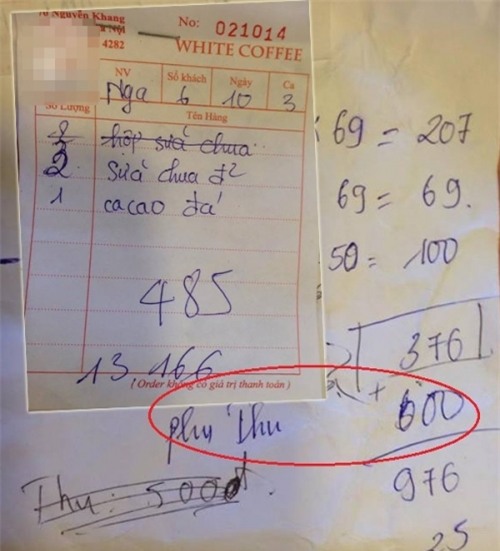 Nguyễn Khang
Nội
4282
No: 021014
WHITE COFFEE
NV Số khách Ngày Ca
Nga 6 10 3
Số Lượng Tên Hàng
hộp sữa chua
2 Sữa chua đ²
1 cacao đá
485
13 166
( Order không có giá trị thanh toán )
69 = 207
69 = 69.
50 = 100
376
+
phụ thu 600
976
Thu: 500đ
25